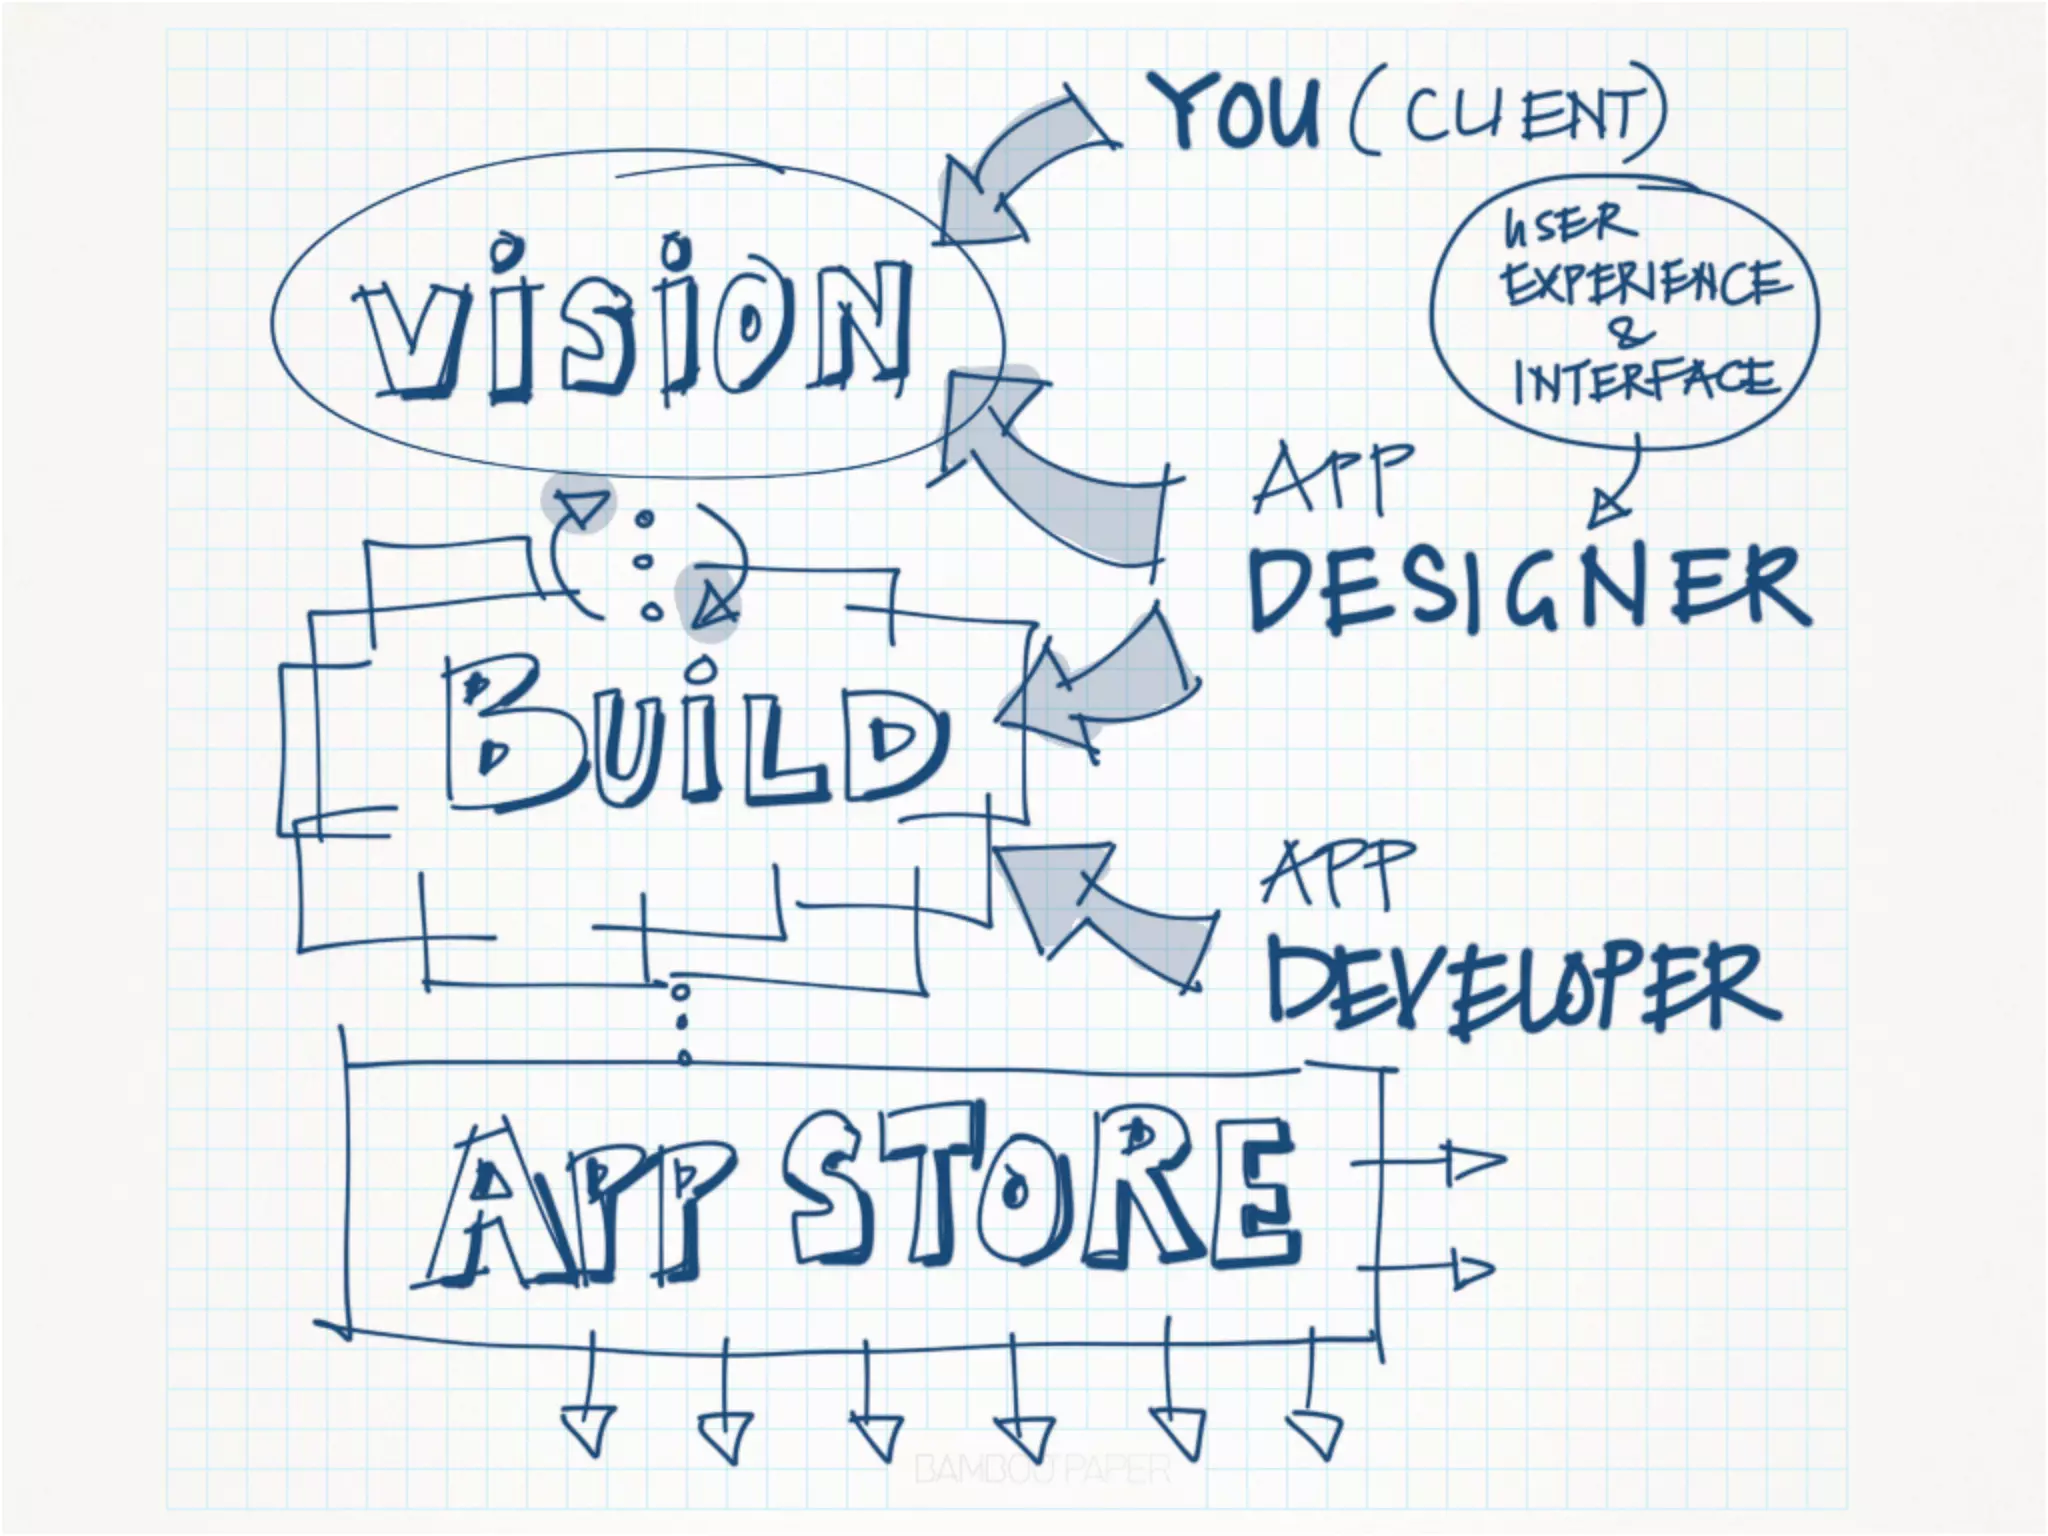 YOU (CLIENT)
ViSiON
USER
EXPERIENCE
&
INTERFACE
APP
DESIGNER
BUiLD
APP
DEVELOPER
APP STORE
BAMBOO PAPER